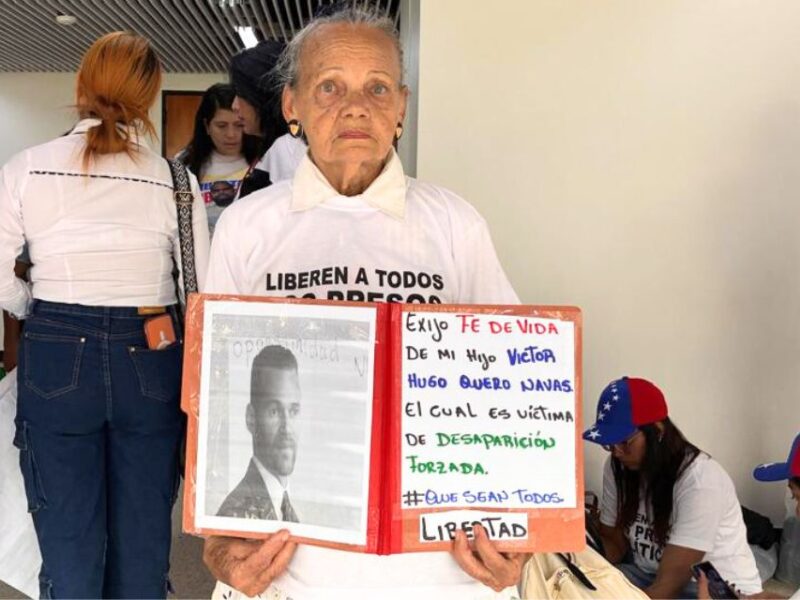 LIBEREN A TODOS
PRESOS
oportunidad
EXIJO FE DE VIDA
DE MI HIJO VICTOR
HUGO QUERO NAVAS.
EL CUAL ES VÍCTIMA
DE DESAPARICIÓN
FORZADA.
#QUE SEAN TODOS
LIBERTAD